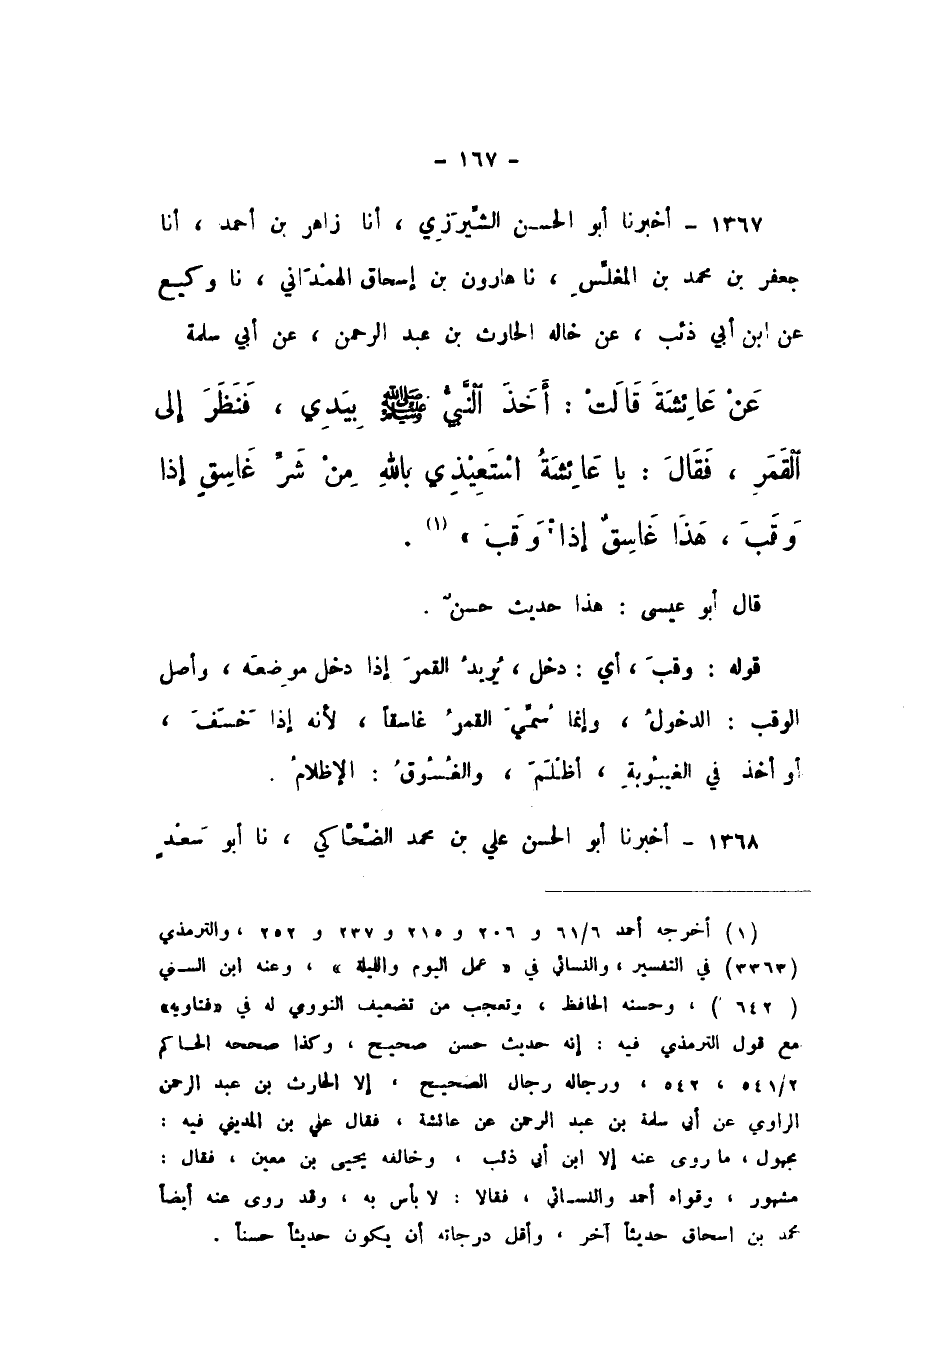 - ١٦٧ -
١٣٦٧ - أخبرنا أبو الحسن الشّيرَزِي ، أنا زاهر بن أحمد ، أنا
جعفر بن محمد بن المغلّسِ ، نا هارون بن إسحاق الهمْدَاني ، نا وكيع
عن ابن أبي ذئب ، عن خاله الحارث بن عبد الرحمن ، عن أبي سلمة
عَنْ عَائِشَةَ قَالَتْ : أَخَذَ ٱلنَّبِيُّ ﷺ بِيَدِي ، فَنَظَرَ إِلى
ٱلْقَمَرِ ، فَقَالَ : يا عَائِشَةُ ٱسْتَعِيْذِي بِاللهِ مِنْ شَرِّ غَاسِقٍ إِذا
وَقَبَ ، هَذَا غَاسِقٌ إِذا وَقَبَ » (١) .
قال أبو عيسى : هذا حديث حسنٌ .
قوله : وقبَ ، أي : دخل ، يُريدُ القمرَ إذا دخل موضِعَه ، وأصل
الوقب : الدخولُ ، وإنما سُمِّيَ القمرُ غاسقاً ، لأنه إذا خَسَفَ ،
أو أخذ في الغيبُوبةِ ، أظْلَمَ ، والغُسُوقُ : الإظلامُ .
١٣٦٨ - أخبرنا أبو الحسن علي بن محمد الضّحّاكي ، نا أبو سَعْدٍ
(١) أخرجه أحمد ٦١/٦ و ٢٠٦ و ٢١٥ و ٢٣٧ و ٢٥٢ ، والترمذي
(٣٣٦٣) في التفسير ، والنسائي في « عمل اليوم والليلة » ، وعنه ابن السني
( ٦٤٢ ) ، وحسنه الحافظ ، وتعجب من تضعيف النووي له في «فتاويه»
مع قول الترمذي فيه : إنه حديث حسن صحيح ، وكذا صححه الحاكم
٥٤١/٢ ، ٥٤٢ ، ورجاله رجال الصحيح ، إلا الحارث بن عبد الرحمن
الراوي عن أبي سلمة بن عبد الرحمن عن عائشة ، فقال علي بن المديني فيه :
مجهول ، ما روى عنه إلا ابن أبي ذئب ، وخالفه يحيى بن معين ، فقال :
مشهور ، وقواه أحمد والنسائي ، فقالا : لا بأس به ، وقد روى عنه أيضاً
محمد بن اسحاق حديثاً آخر ، وأقل درجاته أن يكون حديثاً حسناً .